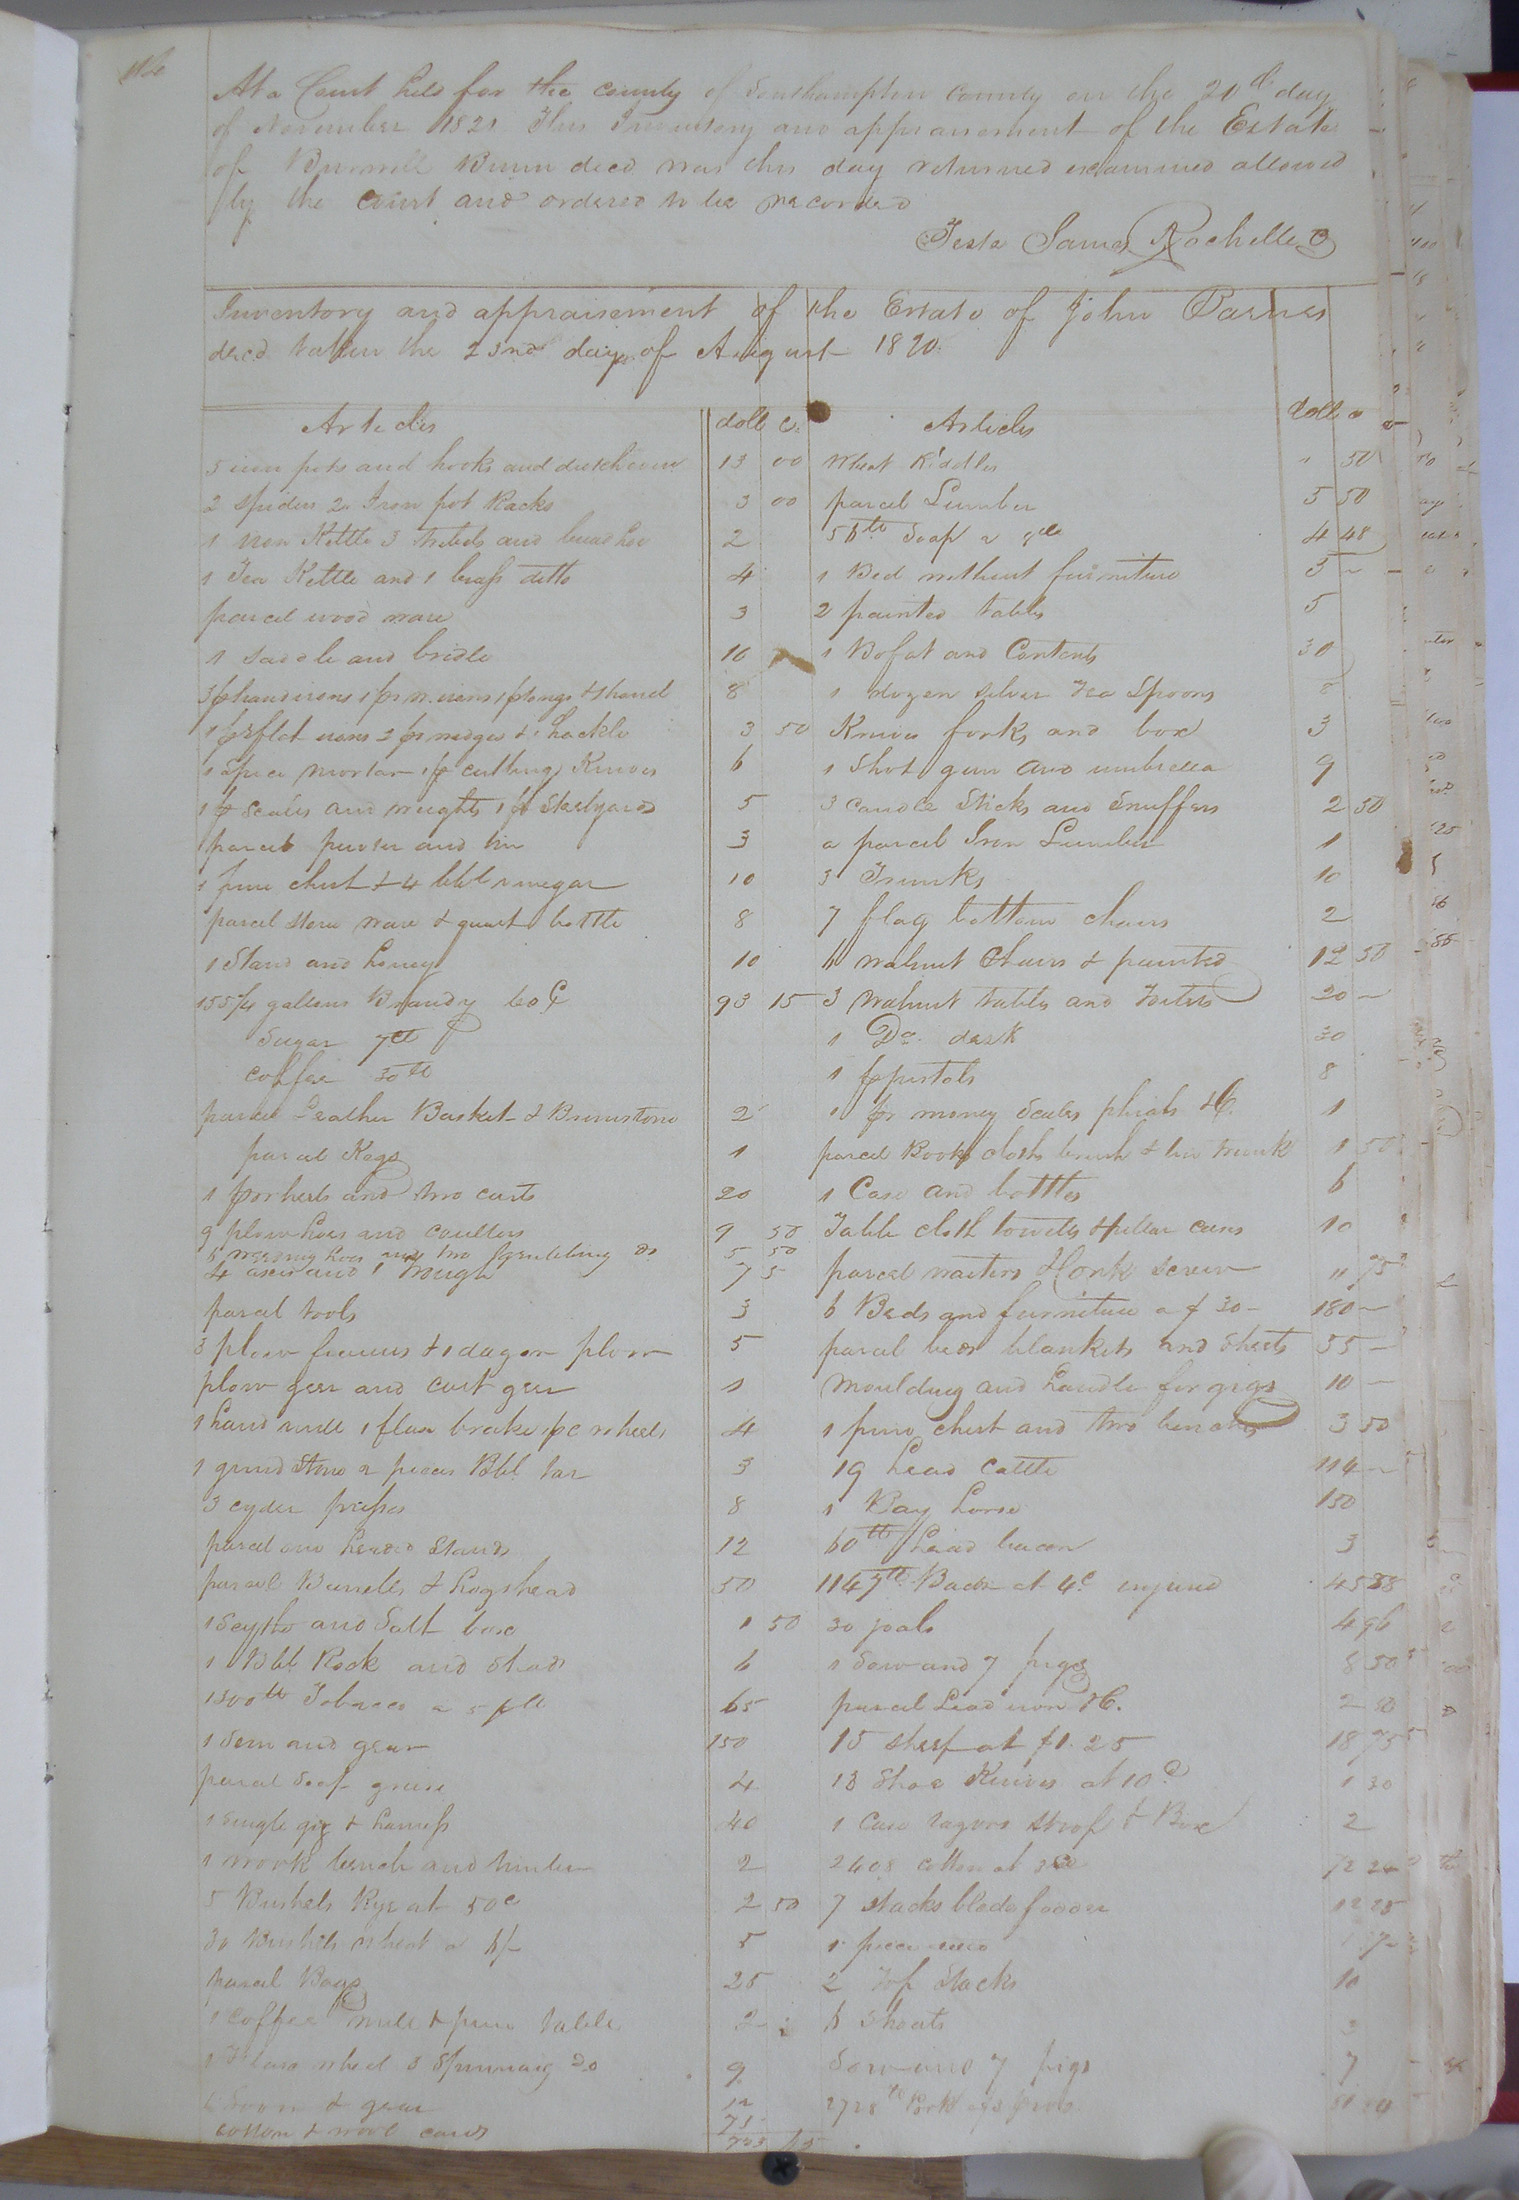 At a Court held for the county of Southampton county on the 20th day
of November 1821 This Inventory and appraisement of the Estate
of Burwell Bunn decd was this day returned examined allowed
by the Court and ordered to be recorded
Teste James Rochelle C
Inventory and appraisement of the Estate of John Barnes
decd taken the 23nd day of August 1820.
Articles doll c.
5 iron pots and hooks and dutch oven 13 00
2 spiders 2 Iron pot Racks 3 00
1 Iron Kettle 3 and 2
1 Tea Kettle and 1 brass ditto 4
parcel wood ware 3
1 saddle and bridle 10
3 pr handirons 1 pr irons 1 pr tongs & shovel 8
1 pr flat irons 3 pr wedges & 1 hackle 3 50
1 spice mortar 1 pr cutting Knives 6
1 pr scales and weights 1 pr Steelyards 5
1 parcel pewter and tin 3
1 pine chest & 4 bbl vinegar 10
parcel stone ware & quart bottle 8
1 Stand and honey 10
155 1/4 gallons Brandy 60 C 93 15
Sugar 7 lb
Coffee 30 lb
parcel Leather Basket & Brimstone 2
parcel Kegs 1
1 pr wheels and two carts 20
9 plow hoes and coulters 9 50
6 weeding hoes and two Grubbing do 5 50
4 axes and 1 7 5
parcel tools 3
3 plow frames & 1 dagon plow 5
plow gear and cart gear 1
1 hand mill 1 flax brake 1 pc wheels 4
1 grind stone 2 pieces Bbl tar 3
3 cyder presses 8
parcel headed Stands 12
parcel Barrells & hogshead 50
1 Scythe and Salt box 1 50
1 Bbl Rock and Shad 6
1300 lb Tobacco a 5 65
1 Sein and gear 150
parcel Soap grease 4
1 Single gig & harness 40
1 work bench and timber 2
5 Bushels Rye at 50c 2 50
30 Bushels wheat a 5
parcel Bags 25
1 Coffee mill & pine table 2
1 Flax wheel 3 Spinning do 9
Loom & gear 12
cotton & wool cards 75
Articles doll c
Wheat Riddles " 50
parcel Lumber 5 50
56 lb Soap a 8 4 48
1 Bed without furniture 5
2 painted tables 5
1 Bofat and Contents 30
1 dozen silver Tea Spoons 8
Knives forks and box 3
1 Shot gun and umbrella 9
3 candle Sticks and Snuffers 2 50
a parcel Iron Lumber 1
3 Trunks 10
7 flag bottom chairs 2
6 walnut Chairs & painted 12 50
3 walnut tables and 20
1 Do. desk 30
1 pr pistols 8
1 pr money Scales phials &C. 1
parcel Books cloths brush & tin trunk 1 50
1 Case and bottles 6
Table cloth towells & pillar cases 10
parcel waiters & Cork screw " 75
6 Beds and furniture a $ 30 180
parcel beds blankets and sheets 55
Moulding and handle for gigs 10
1 pine chest and two benches 3 50
19 head Cattle 114
1 Bay horse 150
60 lb head bacon 3
1147 lb Bacon at 4c injured 45 88
30 joals 4 96
1 Sow and 7 pigs 8 50
parcel Lead iron &C. 2 50
15 sheep at $1.25 18 75
13 Shoe Knives at 10c 1 30
1 Case razors strop & Box 2
2408 cotton at 3 72 24
7 stacks blade fodder 12 25
1 piece
2 top Stacks 10
6 Shoats 3
Sow and 7 pigs 7